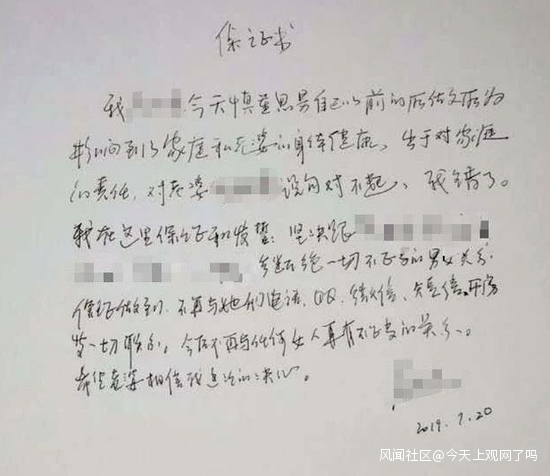 保证书
我 今天慎重思考自己以前的所做所为
影响到了家庭和老婆的身体健康,出于对家庭
的责任,对老婆 说句对不起,我错了。
我在这里保证和发誓:坚决跟
断绝一切不正当的男女关系.
保证做到,不再与她们电话、QQ、微信、短信、开房
等一切联系。今后不再与任何女人再有不正当的关系。
希望老婆相信我这次的决心。
2019.7.20
风闻社区@今天上观网了吗